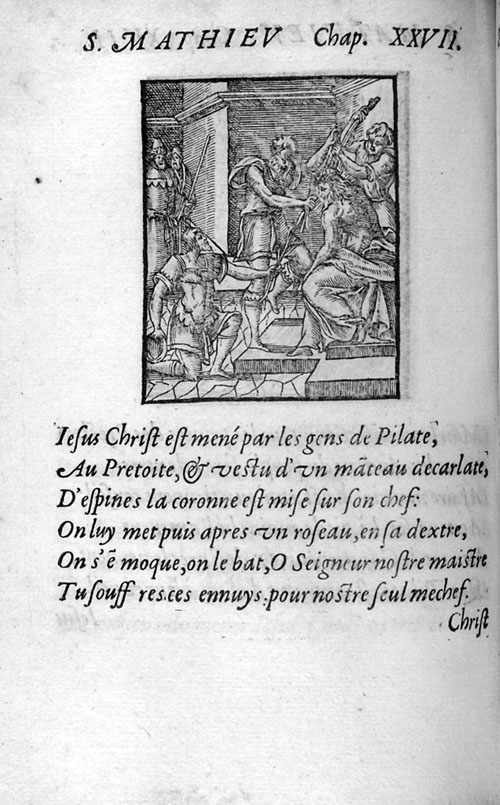 S. MATHIEV Chap. XXVII.
Iesus Christ est mené par les gens de Pilate,
Au Pretoite, & vestu d'vn mãteau decarlate,
D'espines la coronne est mise sur son chef:
On luy met puis apres vn roseau, en sa dextre,
On s'ẽ moque, on le bat, O Seigneur nostre maistre
Tu souff res. ces ennuys. pour nostre seul mechef.
Christ